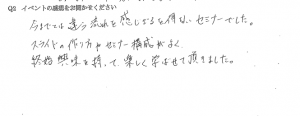 Q3 イベントの感想をお聞かせください
今までとは違う流れを感じざるを得ないセミナーでした。
スライドの作り方やセミナー構成がよく、
終始興味を持って、楽しく学ばせて頂きました。